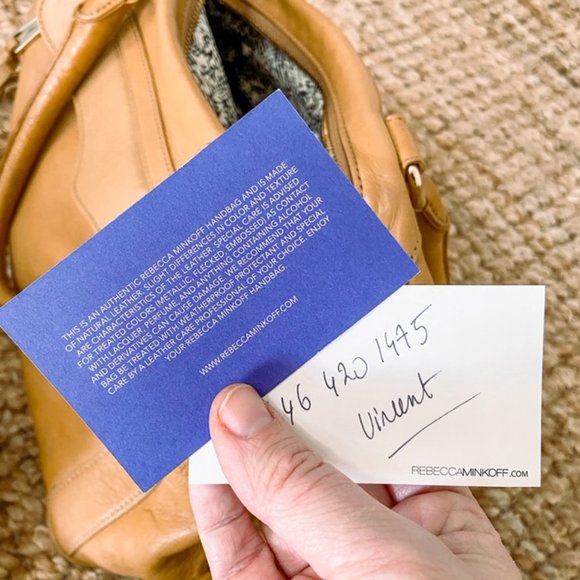 THIS IS AN AUTHENTIC REBECCA MINKOFF HANDBAG AND IS MADE
OF NATURAL LEATHER. SLIGHT DIFFERENCES IN COLOR AND TEXTURE
ARE CHARACTERISTICS OF THE LEATHER. SPECIAL CARE IS ADVISED
FOR TREATED COLORS (METALLIC, FLECKED, EMBOSSED) AS CONTACT
WITH LACQUER, PERFUME, AND ANYTHING CONTAINING ALCOHOL
AND DERIVATIVES CAN CAUSE DAMAGE. WE RECOMMEND THAT YOUR
BAG BE TREATED WITH WEATHERPROOF PROTECTANT AND SPECIAL
CARE BY A LEATHER CARE PROFESSIONAL OF YOUR CHOICE. ENJOY
YOUR REBECCA MINKOFF HANDBAG.
WWW.REBECCAMINKOFF.COM
46 420 1475
Vincent
REBECCAMINKOFF.COM